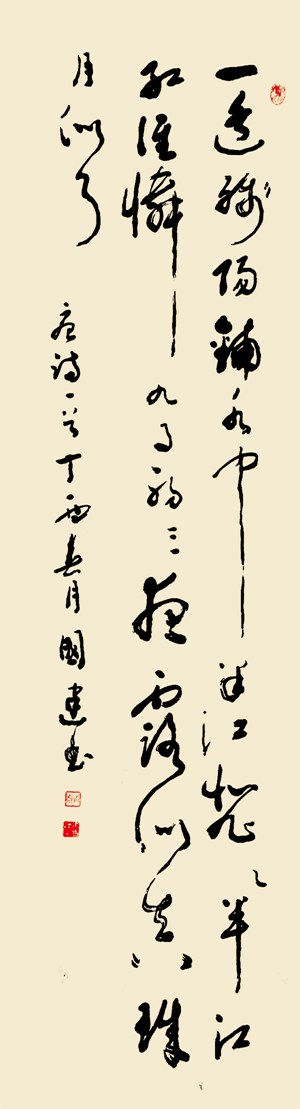 一道殘陽鋪水中半江瑟々半江
紅誰憐九月初三夜露似真珠
月似弓
唐詩一首丁酉春月國建書